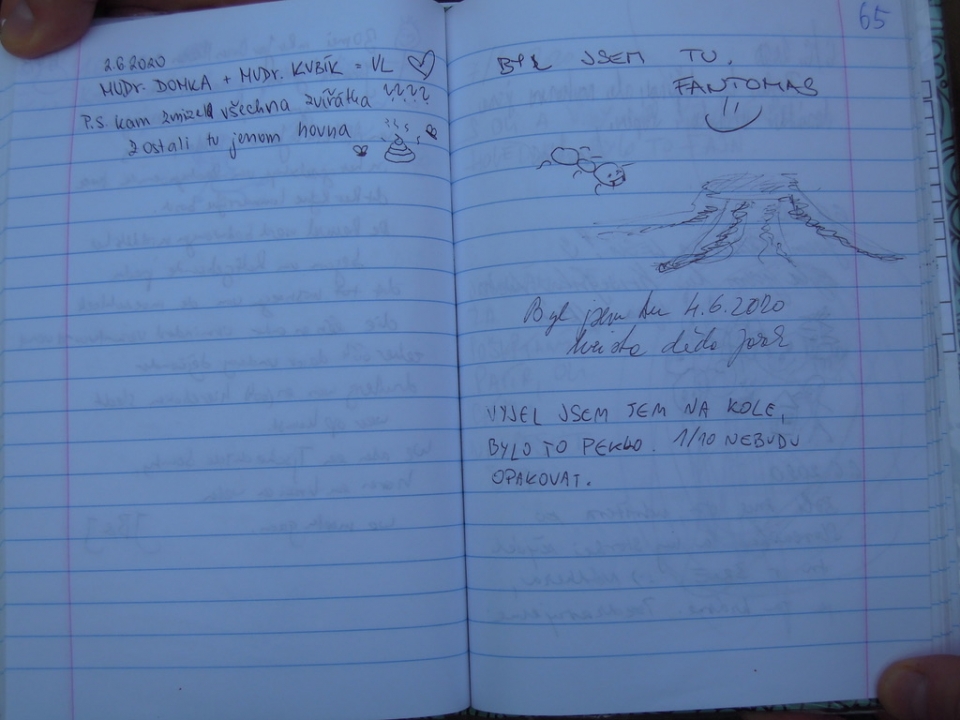 2.6.2020
MUDr. DOMKA + MUDr. KUBÍK = VL ♡
P.S. kam zmizela všechna zvířátka ????
Zostali tu jenom hovna
65
BYL JSEM TU.
FANTOMAS
Byl jsem tu 4.6.2020
děda
VYJEL JSEM JEM NA KOLE,
BYLO TO PEKLO. 1/10 NEBUDU
OPAKOVAT.